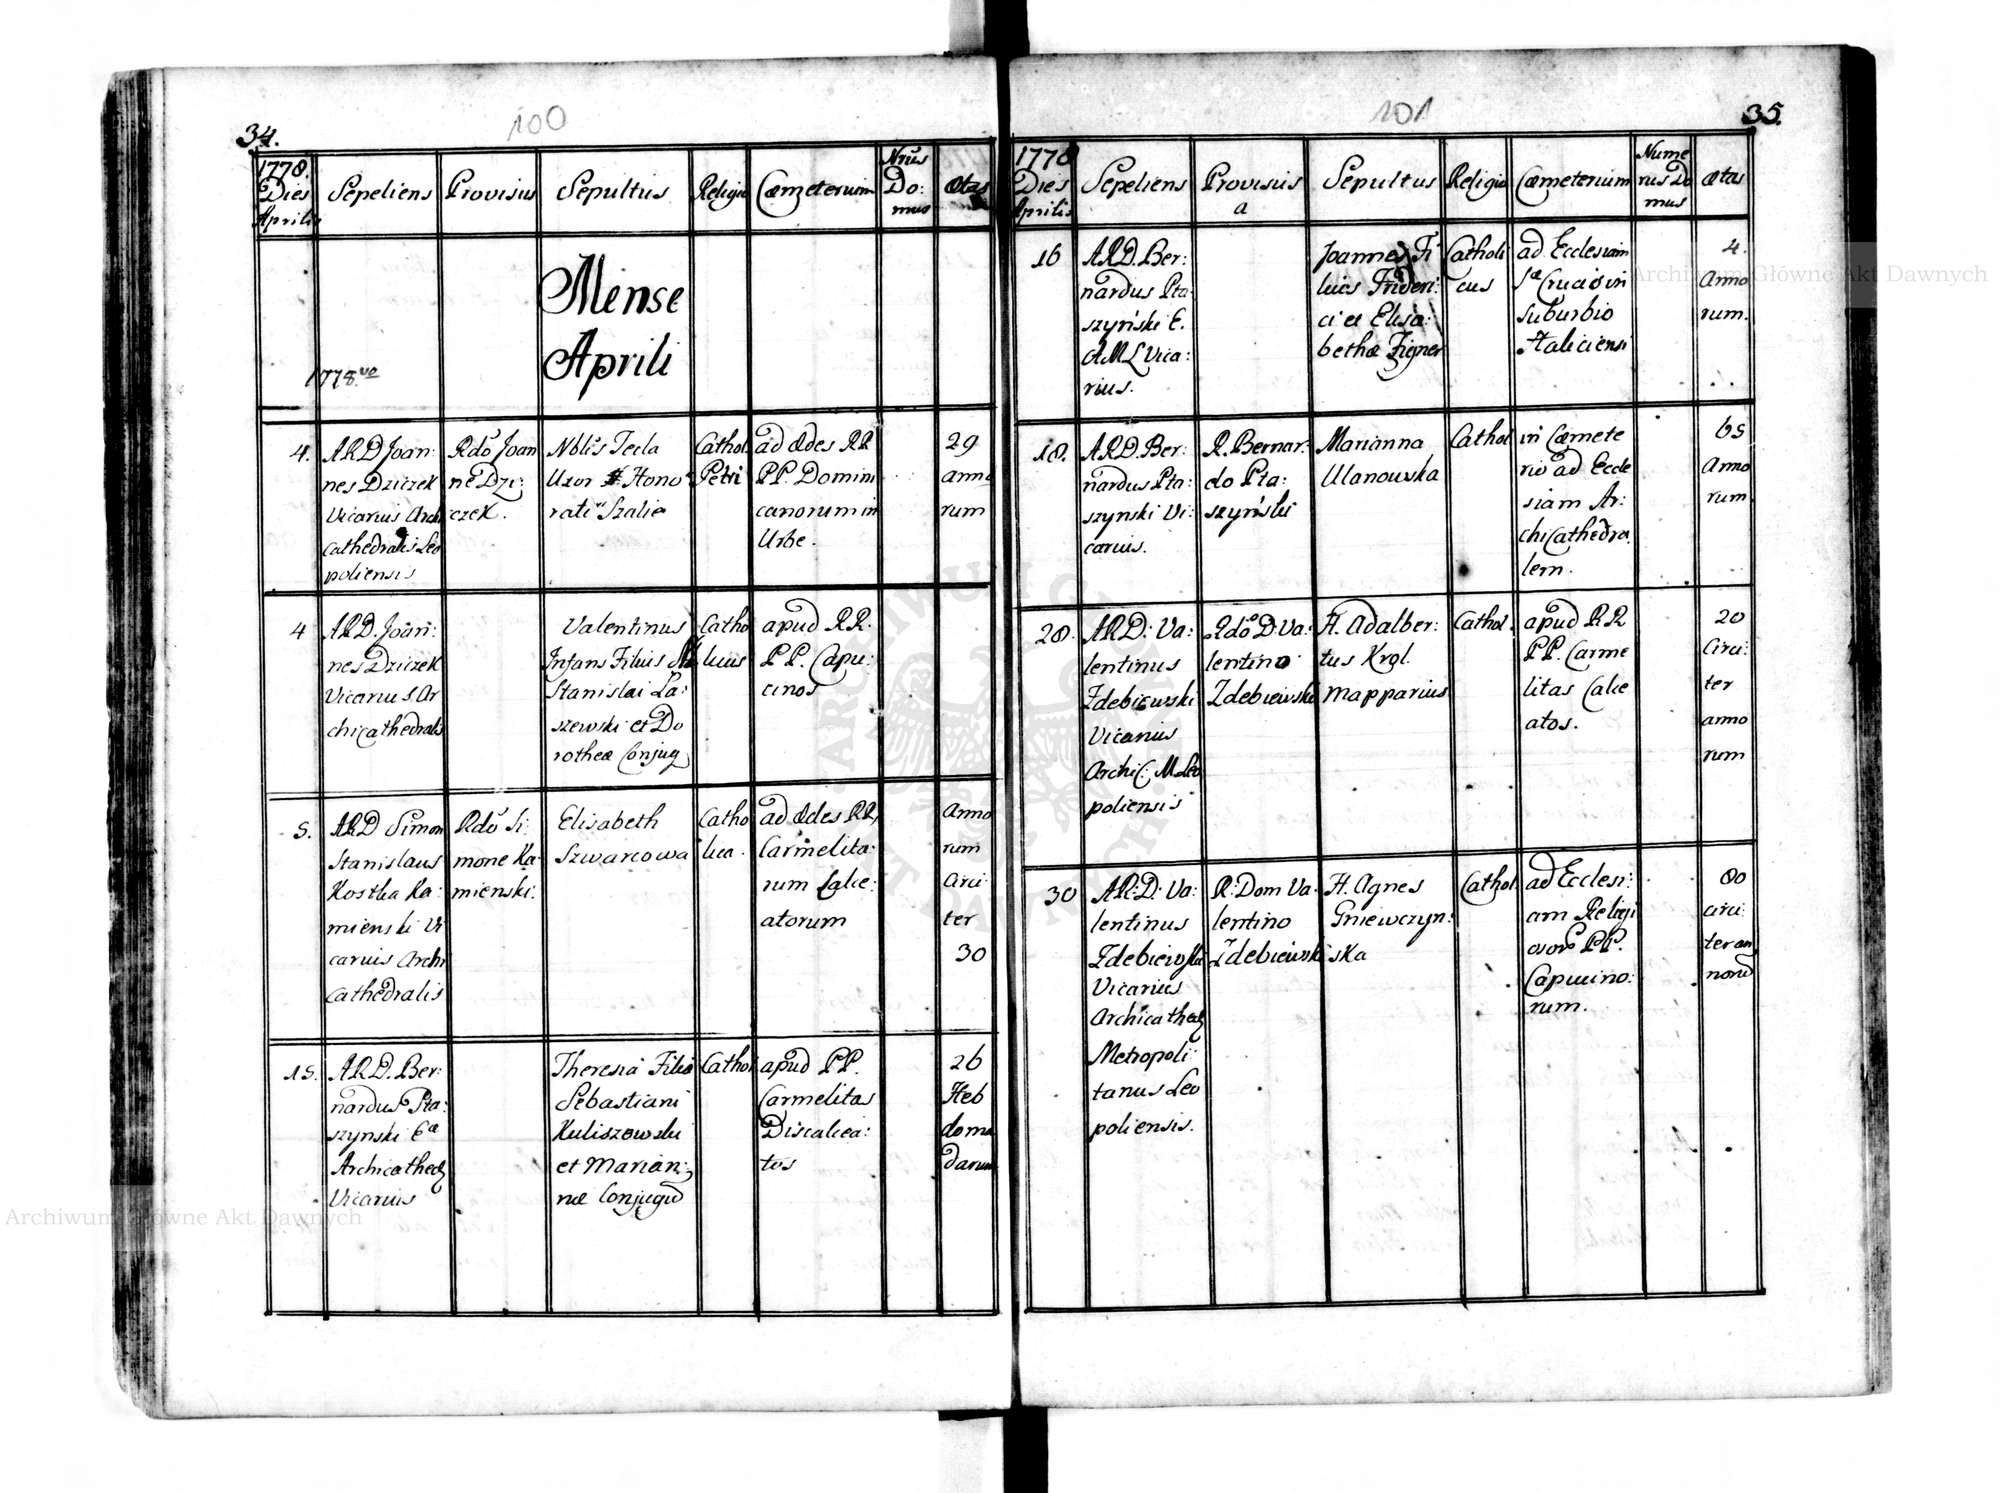 34.
100
1778.
Dies
Aprilis
Sepeliens
Provisius
Sepultus
Religio
Cœmeterium
Nrus
Do:
mus
Ætas
Mense
Aprili
1778.vo
4.
ARD Joan:
nes Dziczek
Vicarius Archi
cathedralis Leo
poliensis
Rdo Joan
ne Dzi:
czek.
Nblis Tecla
Uxor Hono
rati Szalia
Cathol.
Petri
ad Ædes RR
PP. Domini
canorum in
Urbe.
29
anno
rum
4
ARD. Joan:
nes Dziczek
Vicarius Ar
chicathedralis
Valentinus
Infans Filius
Stanislai La:
szewski et Do
rotheæ Conjug
Catho
licus
apud RR.
PP. Capu:
cinos
5.
ARD Simon
Stanislaus
Kostka Ka:
mienski Vi
carius Archi
cathedralis
Rdo Si:
mone Ka:
mienski.
Elisabeth
Szwarcowa
Catho
lica.
ad Ædes RR.
Carmelita:
rum Calce:
atorum
Anno
rum
circi
ter
30
15.
ARD. Ber:
nardus Pta:
szynski Eæ
Archicathed
Vicarius
Theresia Filia
Sebastiani
Kuliszowski
et Marian:
næ Conjugu
Cathol
apud PP.
Carmelitas
Discalcea:
tos
26
Heb
doma
darum
101
35.
1778
Dies
Aprilis
Sepeliens
Provisus
a
Sepultus
Religio
Cœmeterium
Nume
rus Do
mus
ætas
16
ARD. Ber:
nardus Pta
szyński E.
A.M.L Vica:
rius.
Joannes Fi
lius Frideri:
ci et Elisa:
bethæ Figner
Catholi
cus
ad Ecclesiam
Sæ Crucis in
Suburbio
Haliciensi
4.
Anno
rum.
18.
ARD. Ber:
nardus Pta:
szynski Vi:
carius.
R. Bernar:
do Pta:
szyński
Marianna
Ulanowska
Cathol
in Cœmete
rio ad Eccle
siam Ar:
chicathedra.
lem.
65
Anno
rum
28.
ARD: Va:
lentinus
Zdebiewski
Vicarius
Archic: M Leo
poliensis
Rdo D. Va:
lentino
Zdebiewski
H. Adalber:
tus Krol
mapparius
Cathol.
apud RR
PP. Carme
litas Calce
atos.
20
Circi:
ter
anno
rum
30
AR: D: Va:
lentinus
Zdebiewski
Vicarius
Archicathed
Metropoli
tanus Leo
poliensis.
R: Dom Va:
lentino
Zdebiewski
H. Agnes
Gniewczyn:
ska
Cathol.
ad Ecclesi:
am Religi
osor PP.
Capucino:
rum.
80
circi:
ter an
noru
Archiwum Główne Akt Dawnych
Archiwum Główne Akt Dawnych
ARCHIWUM GŁÓWNE AKT DAWNYCH